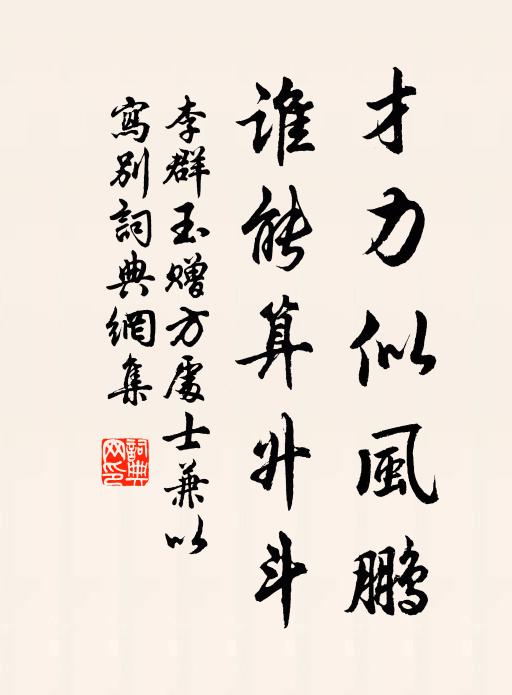 才力似風鵬
谁能算升斗
李群玉赠方處士兼以
寫别詞典網集
詞典网印